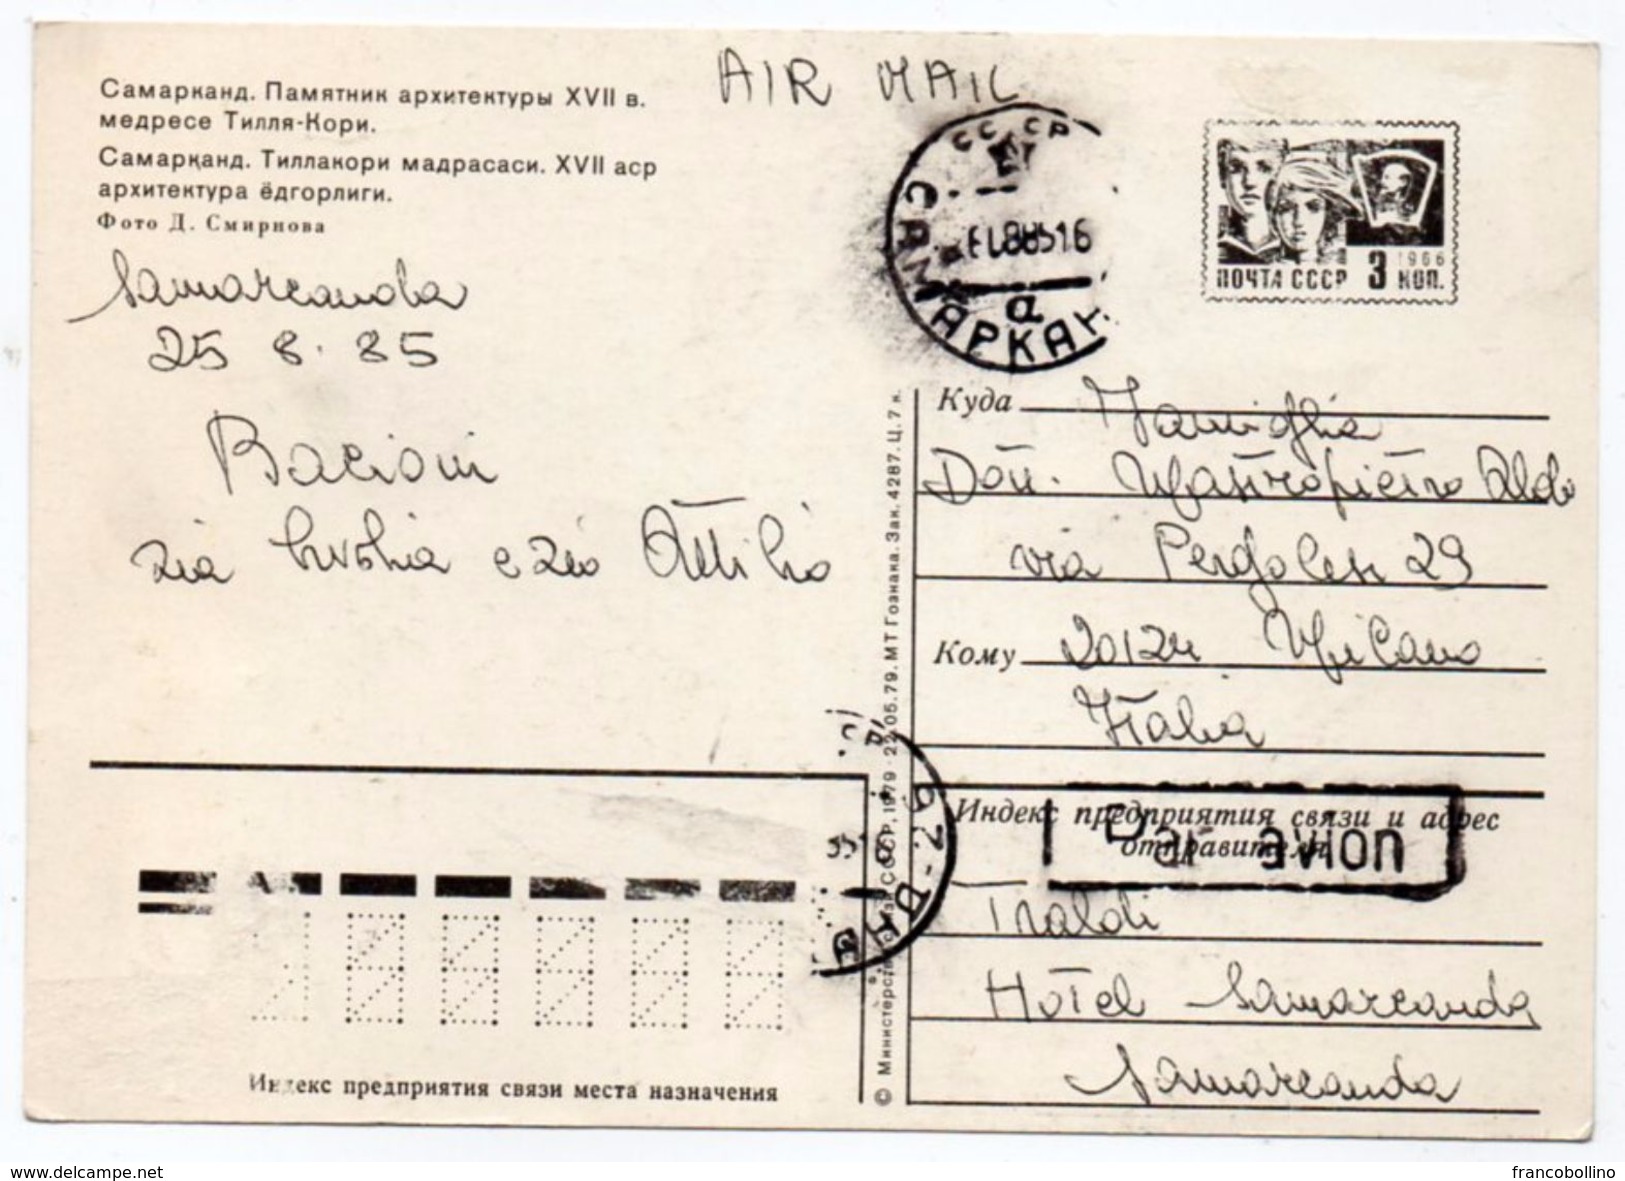 AIR MAIL
Самарканд. Памятник архитектуры XVII в.
медресе Тилля-Кори.
Самарқанд. Тиллакори мадрасаси. XVII аср
архитектура ёдгорлиги.
Фото Д. Смирнова
Samarcanda
25 8. 85
Bacioni
zia e zio Attilio
СССР
САМАРКАН
а
ПОЧТА СССР 3 КОП.
1966
Куда Famiglia
Dott. Mastropietro Aldo
via Pergolesi 29
Кому 20124 Milano
Italia
Индекс предприятия связи и адрес
отправителя
Par avion
Traldi
Hotel Samarcanda
Samarcanda
Индекс предприятия связи места назначения
© Министерство связи СССР, 1979 · 22.05.79. МТ Гознака. Зак. 4287. Ц. 7 к.
www.delcampe.net
francobollino